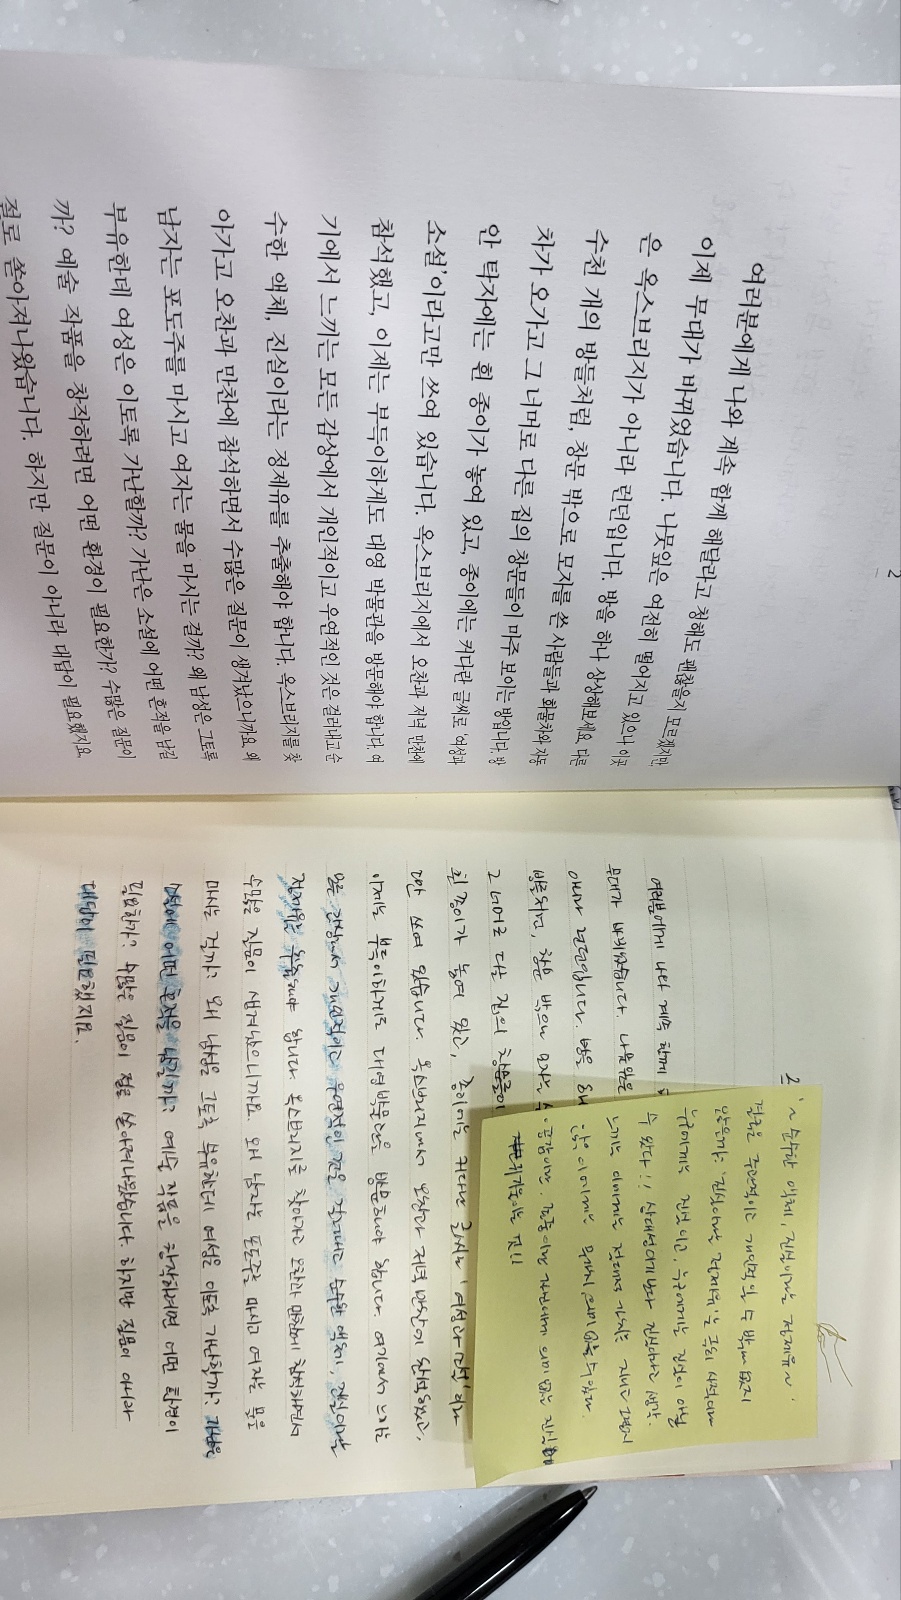 2
여러분에게 나와 계속 함께 해달라고 청해도 괜찮을지 모르겠지만
이제 무대가 바뀌었습니다. 나뭇잎은 여전히 떨어지고 있으나 이곳
은 옥스브리지가 아니라 런던입니다. 방을 하나 상상해보세요. 다른
수천 개의 방들처럼, 창문 밖으로 모자를 쓴 사람들과 화물차와 자동
차가 오가고 그 너머로 다른 집의 창문들이 마주 보이는 방입니다. 방
안 탁자에는 흰 종이가 놓여 있고, 종이에는 커다란 글씨로 '여성과
소설'이라고만 쓰여 있습니다. 옥스브리지에서 오찬과 저녁 만찬에
참석했고, 이제는 부득이하게도 대영 박물관을 방문해야 합니다. 여
기에서 느끼는 모든 감상에서 개인적이고 우연적인 것은 걸러내고 순
수한 액체, 진실이라는 정제유를 추출해야 합니다. 옥스브리지를 찾
아가고 오찬과 만찬에 참석하면서 수많은 질문이 생겨났으니까요. 왜
남자는 포도주를 마시고 여자는 물을 마시는 걸까? 왜 남성은 그토록
부유한데 여성은 이토록 가난할까? 가난은 소설에 어떤 흔적을 남길
까? 예술 작품을 창작하려면 어떤 환경이 필요한가? 수많은 질문이
절로 쏟아져나왔습니다. 하지만 질문이 아니라 대답이 필요했지요.
2
여러분에게 나와 계속 함께
무대가 바뀌었습니다. 나뭇잎은
아니라 런던입니다. 방을 하나
방들처럼, 창문 밖으로 모자를
그 너머로 다른 집의 창문들이
흰 종이가 놓여 있고, 종이에는 커다란 글씨로 '여성과 소설'이라
고만 쓰여 있습니다. 옥스브리지에서 오찬과 저녁 만찬에 참석했고,
이제는 부득이하게도 대영 박물관을 방문해야 합니다. 여기에서 느끼는
모든 감상에서 개인적이고 우연적인 것은 걸러내고 순수한 액체, 진실이라는
정제유를 추출해야 합니다. 옥스브리지를 찾아가고 오찬과 만찬에 참석하면서
수많은 질문이 생겨났으니까요. 왜 남자는 포도주를 마시고 여자는 물을
마시는 걸까? 왜 남성은 그토록 부유한데 여성은 이토록 가난할까? 가난은
소설에 어떤 흔적을 남길까? 예술 작품을 창작하려면 어떤 환경이
필요한가? 수많은 질문이 절로 쏟아져나왔습니다. 하지만 질문이 아니라
대답이 필요했지요.
'~ 순수한 액체, 진실이라는 정제유 ~'
결국은 주관적이고 개인적일 수 밖에 없지
않은가? '진실이라는 정제유'는
누구에게는 진실이고 누구에게는 진실이 아닐
수 있다!!